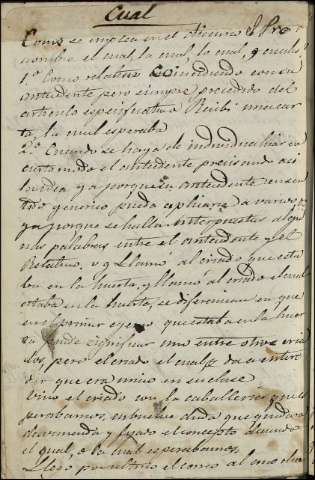 Cual
Como se emplea en el discurso el Pro-
nombre el cual, la cual, lo cual, y cuales
1º Como relativo coincidiendo con su
antecedente pero siempre precedido del
articulo especificativo Recibi una car
ta, la cual esperaba
2º Cuando se haya de individualizar ó
el antecedente precisando asi
la idea y a porque su antecedente en sen
tido generico pueda aplicarse a varios,
ya porque se hallan interpuestas algu
nas palabras entre el antecedente y el
Relativo, v g Llamó al criado que esta
ba en la huerta, y llamo al criado el cual
estaba en la huerta, se diferencian en que
en el primer ejemp que estaba en la huer
ta puede significar uno entre otros cria
dos, pero el criado el cual da a enten
dir que era unico en su clase
Vino el criado con la caballeria que es
perabamos, en buena duda que quedara
desvanecida y fijado el concepto diciendo
el qual, o la cual esperabamos
Llevo por ultimo el correo al